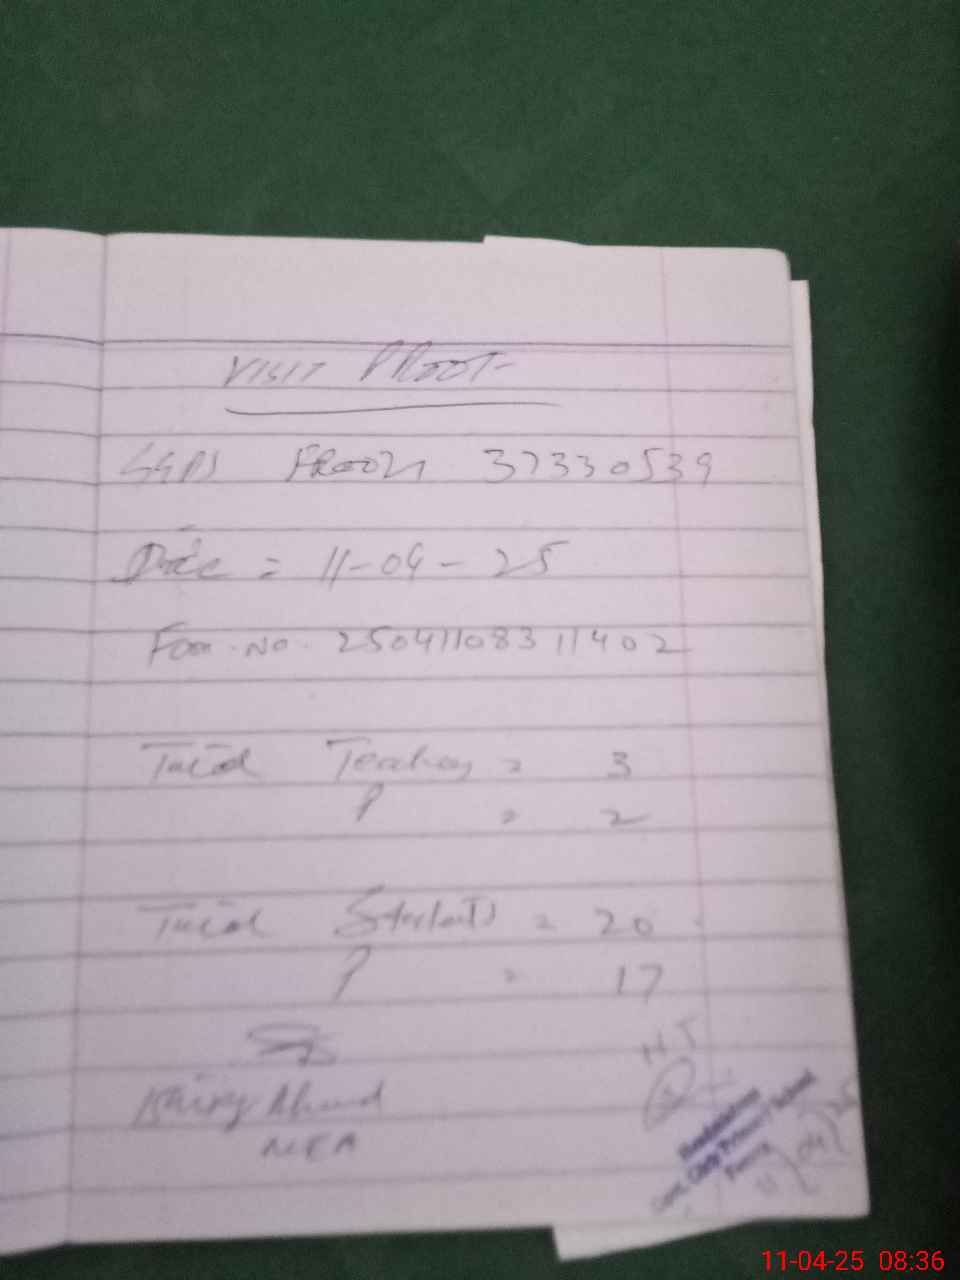 VISIT PROOF
GGPS FROOM 37330539
Date = 11-04-25
Form No. 25041108311402
Total Teachers = 3
P = 2
Total Students = 20
P = 17
H.T
Ahmad
MEA
Headmistress
Govt. Girls Primary School
11-04-25 08:36